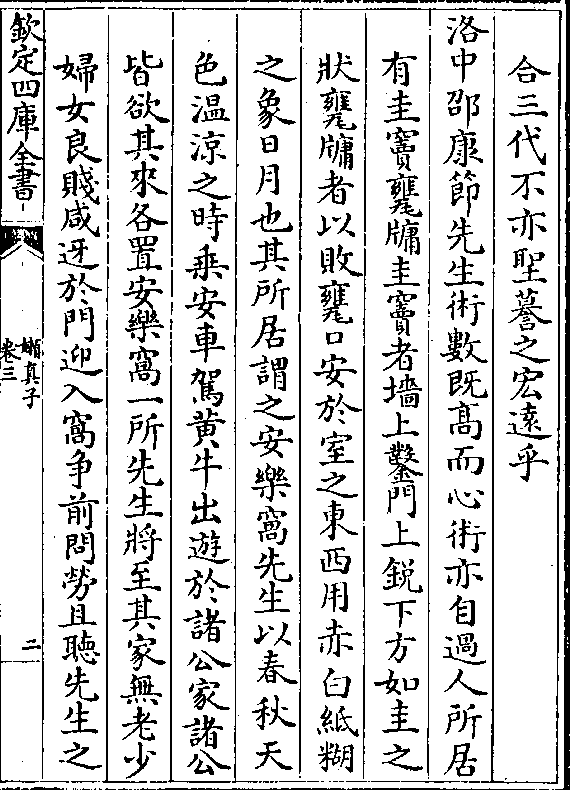 合三代不亦聖謩之宏遠乎
洛中邵康節先生術數既髙而心術亦自過人所居
有圭竇甕牖圭竇者墻上鑿門上鋭下方如圭之
狀甕牖者以敗甕口安於室之東西用赤白紙糊
之象日月也其所居謂之安樂窩先生以春秋天
色温涼之時乗安車駕黄牛出遊於諸公家諸公
皆欲其來各置安樂窩一所先生將至其家無老少
婦女良賤咸迓於門迎入窩争前問勞且聴先生之
欽定四庫全書
嬾真子
卷三
二